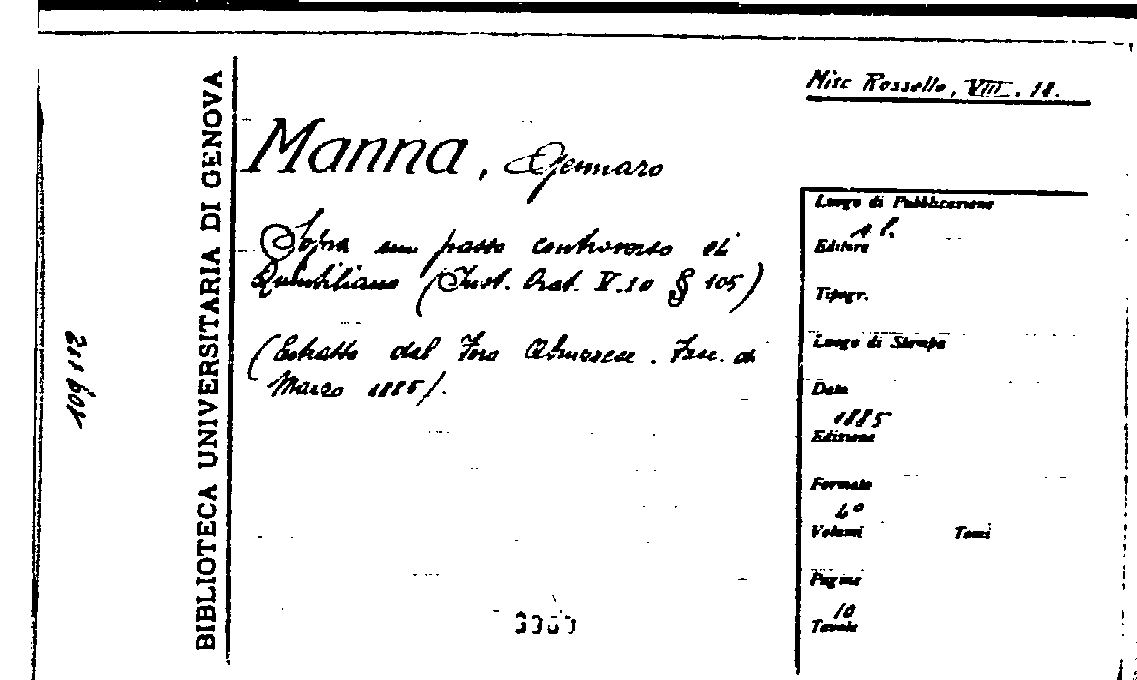 Misc Rossello, VIII. 18.
BIBLIOTECA UNIVERSITARIA DI GENOVA
Manna, Gennaro
Sopra un passo controverso di
Quintiliano (Inst. Orat. V.10 § 105)
(Estratto dal Foro Abruzzese. Fasc. di
Marzo 1885).
Luogo di Pubblicazione
s. l.
Editore
Tipogr.
Luogo di Stampa
Data
1885
Edizione
Formato
4°
Volumi Tomi
Pagine
10
Tavole